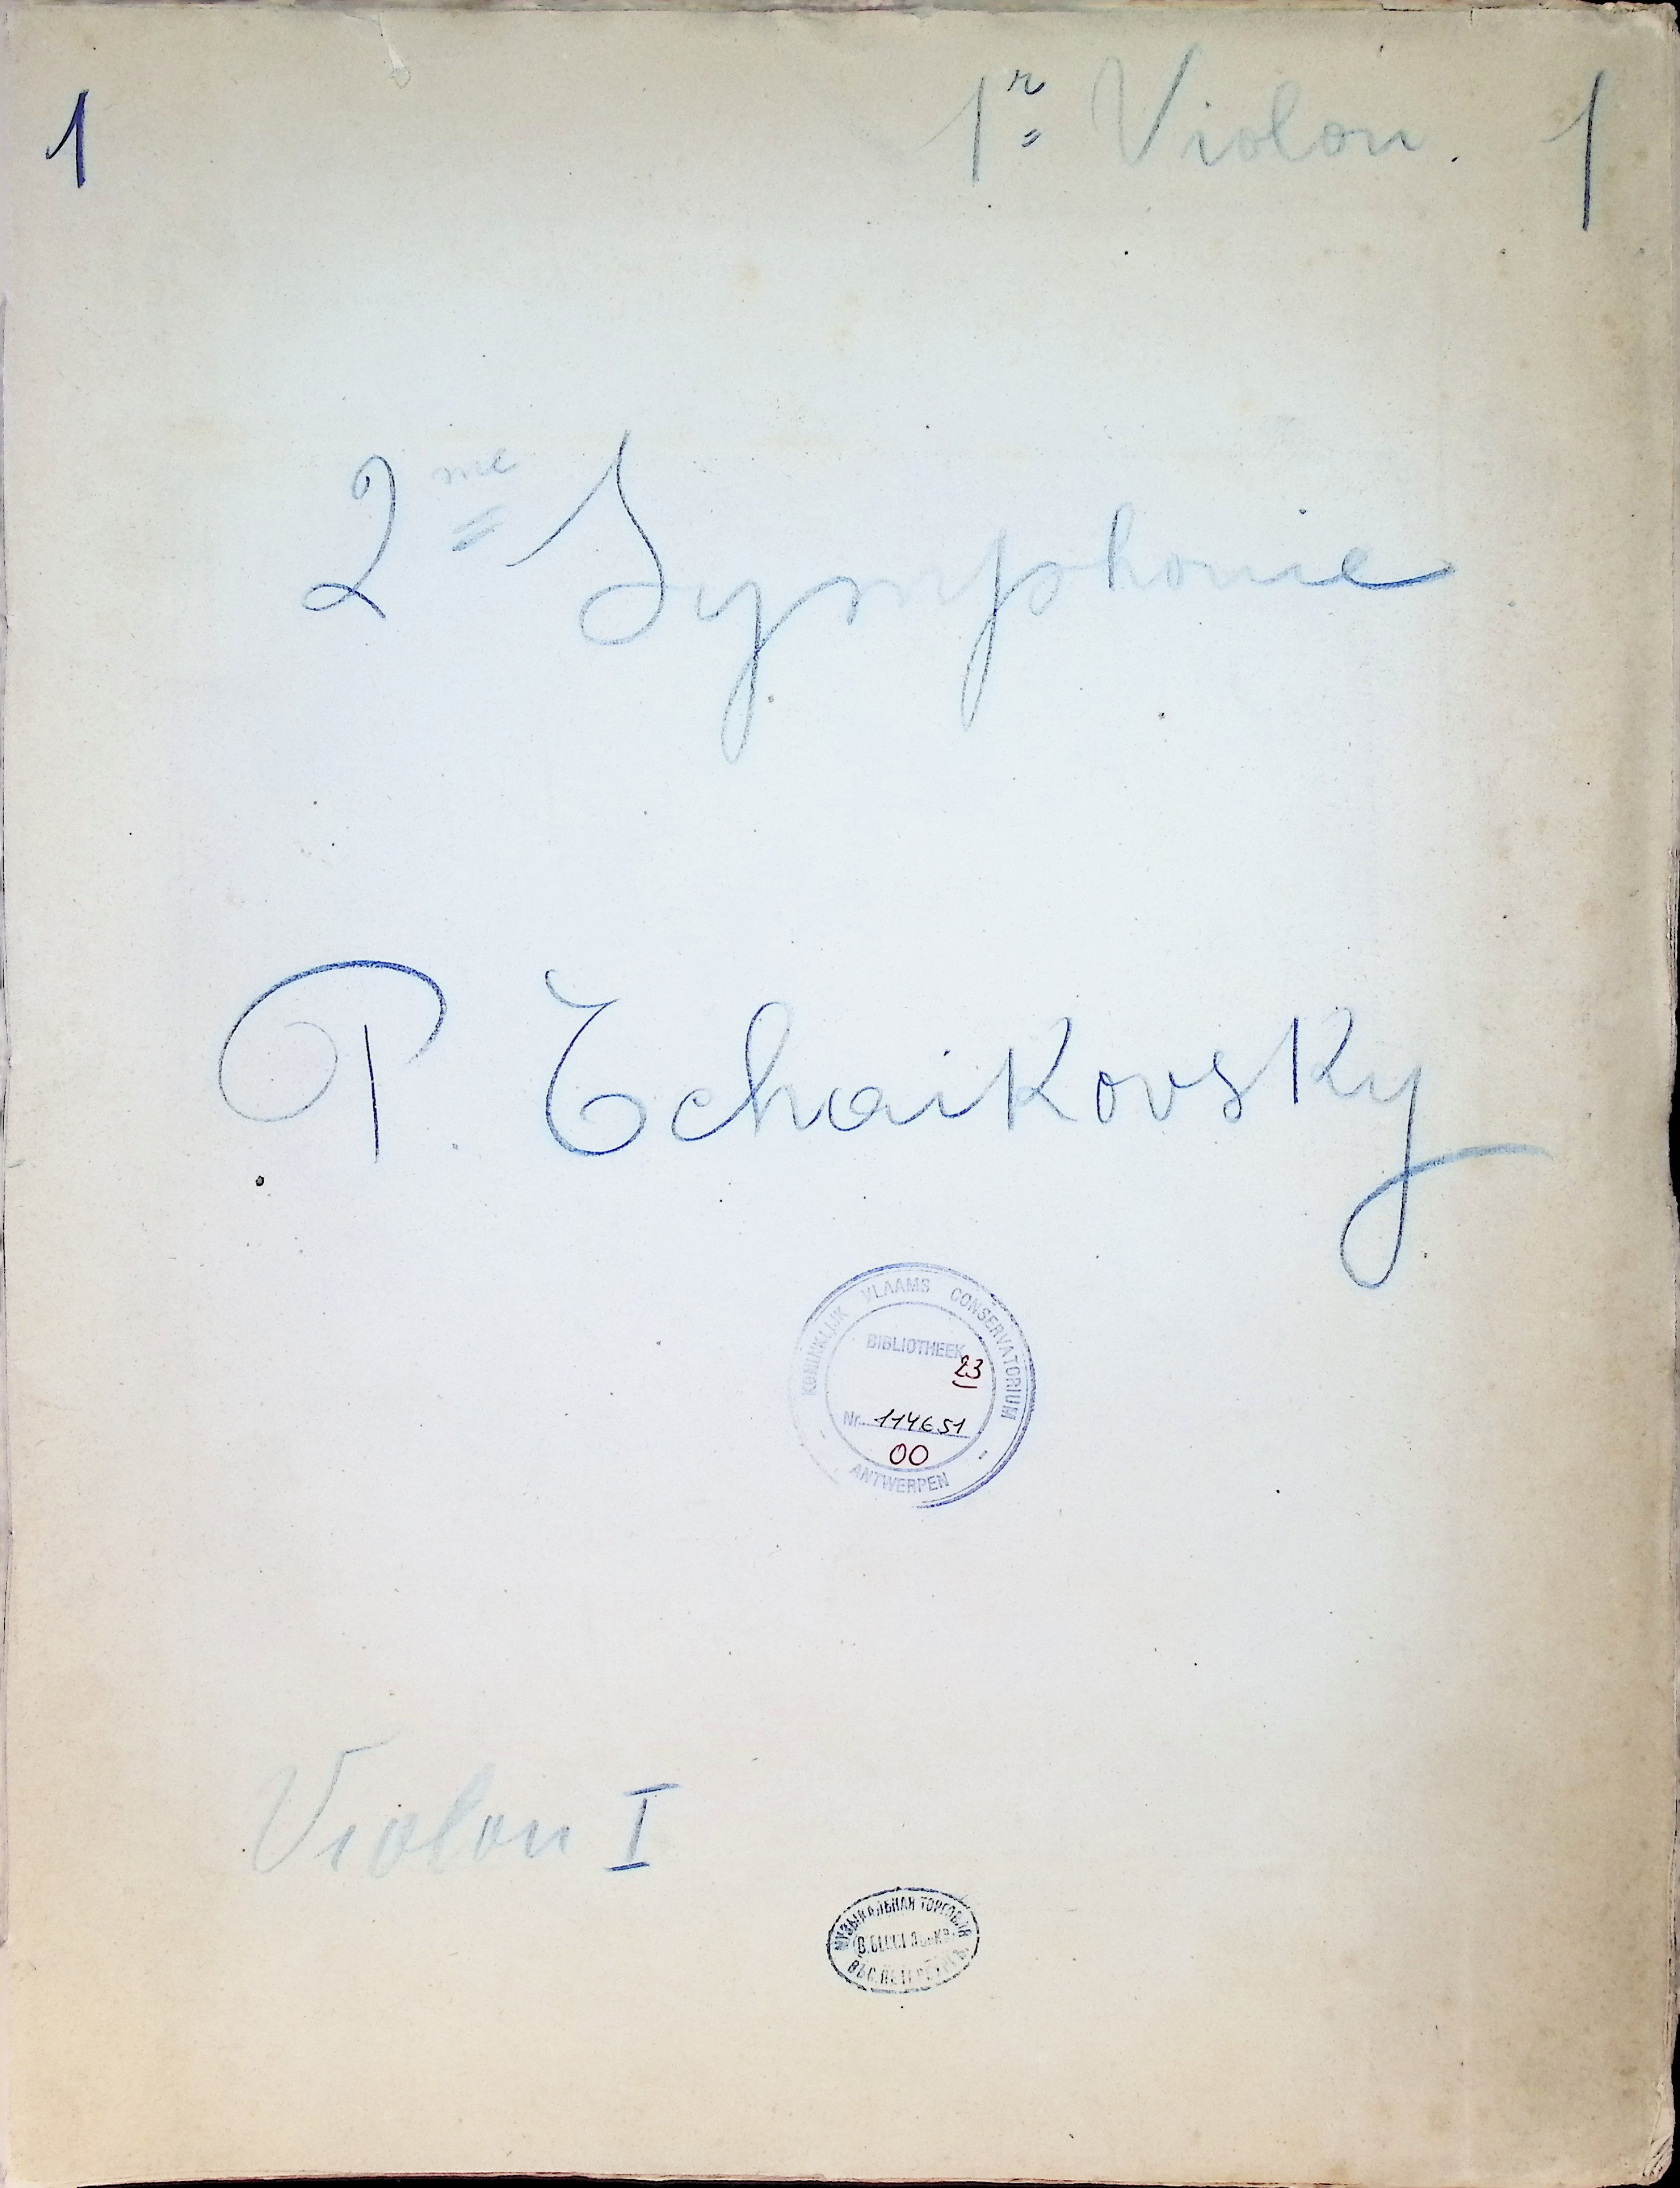 1
1r Violon. 1
2me Symphonie
P. Tchaikovsky
KONINKLIJK VLAAMS CONSERVATORIUM
BIBLIOTHEEK
23
Nr. 114651
00
- ANTWERPEN -
Violon I
МУЗЫКАЛЬНАЯ ТОРГОВЛЯ